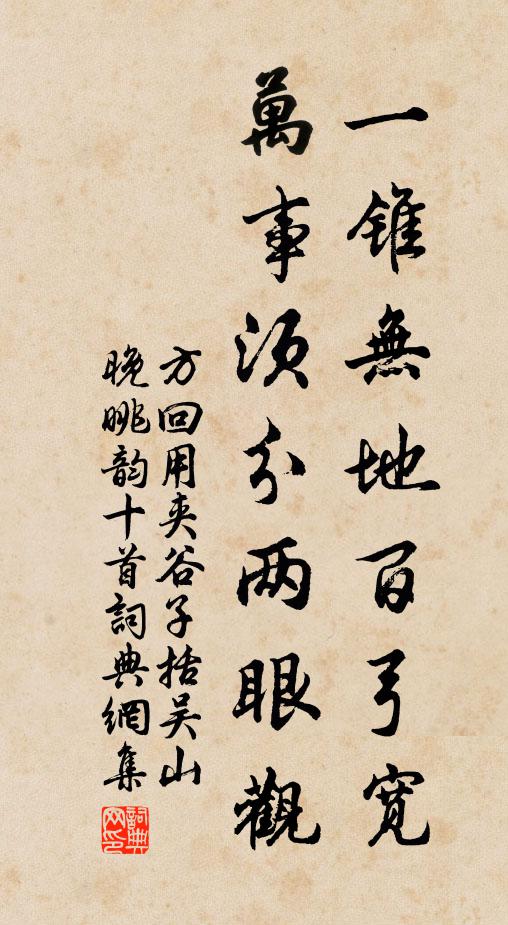 一錐無地百弓寬
萬事須分兩眼觀
方回用夹谷子括吴山
晚眺韵十首詞典網集
詞典网印